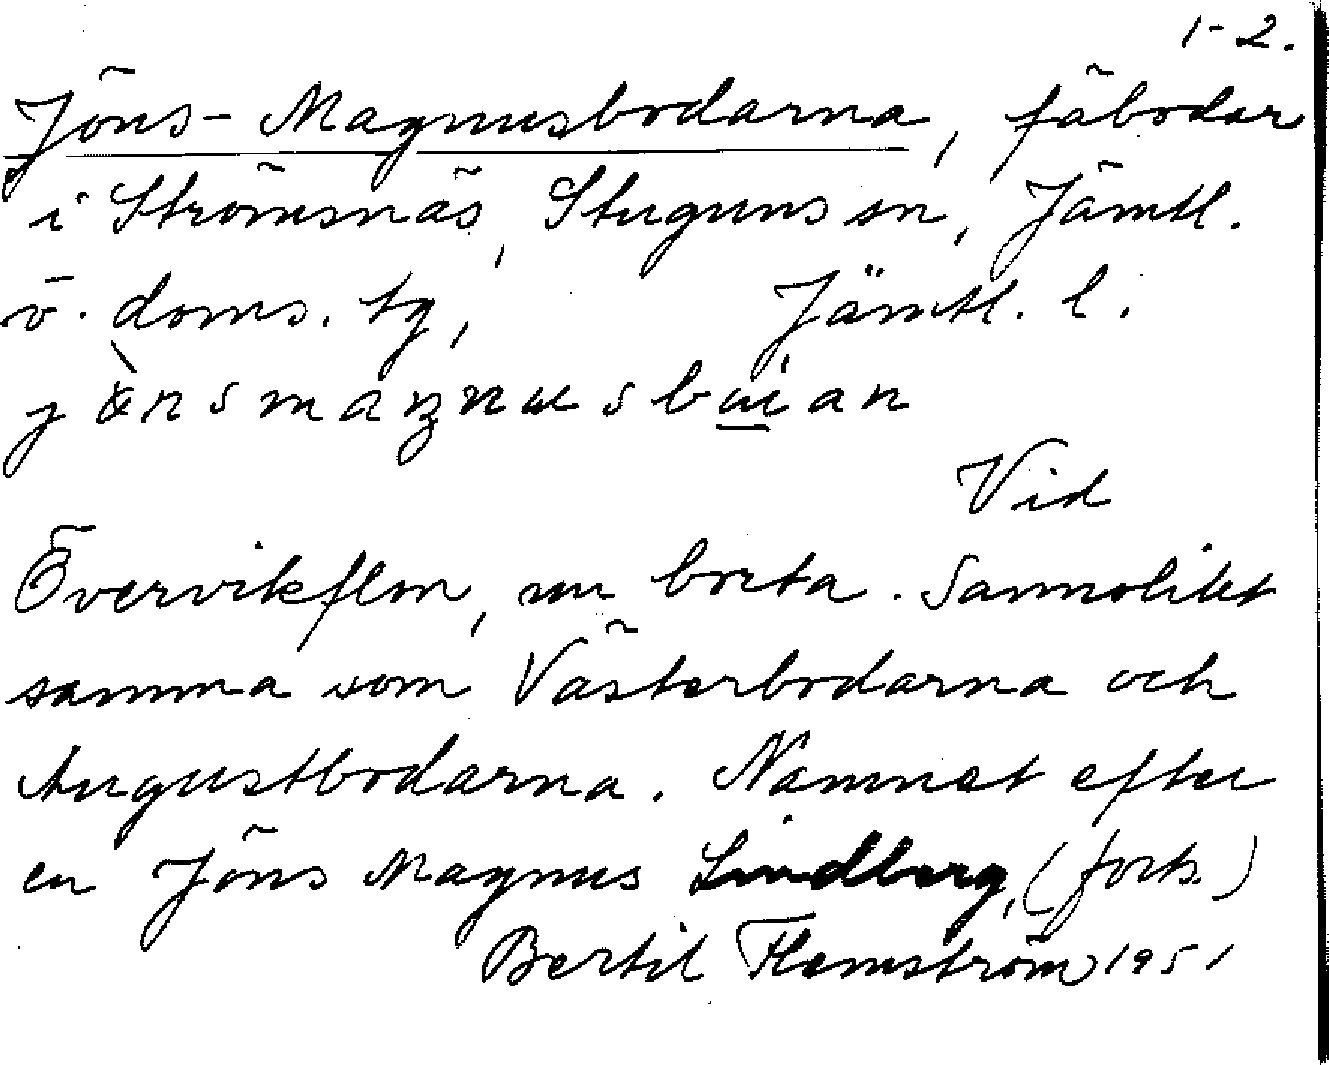 1-2.
Jöns-Magnusbodarna, fäbodar
i Strömsnäs, Stuguns sn, Jämtl.
ö. doms. tg, Jämtl. l.
Vid
Övervikflon, nu borta. Sannolikt
samma som Västerbodarna och
Augustbodarna. Namnet efter
en Jöns Magnus Lindberg, (forts.)
Bertil Flemström 1951